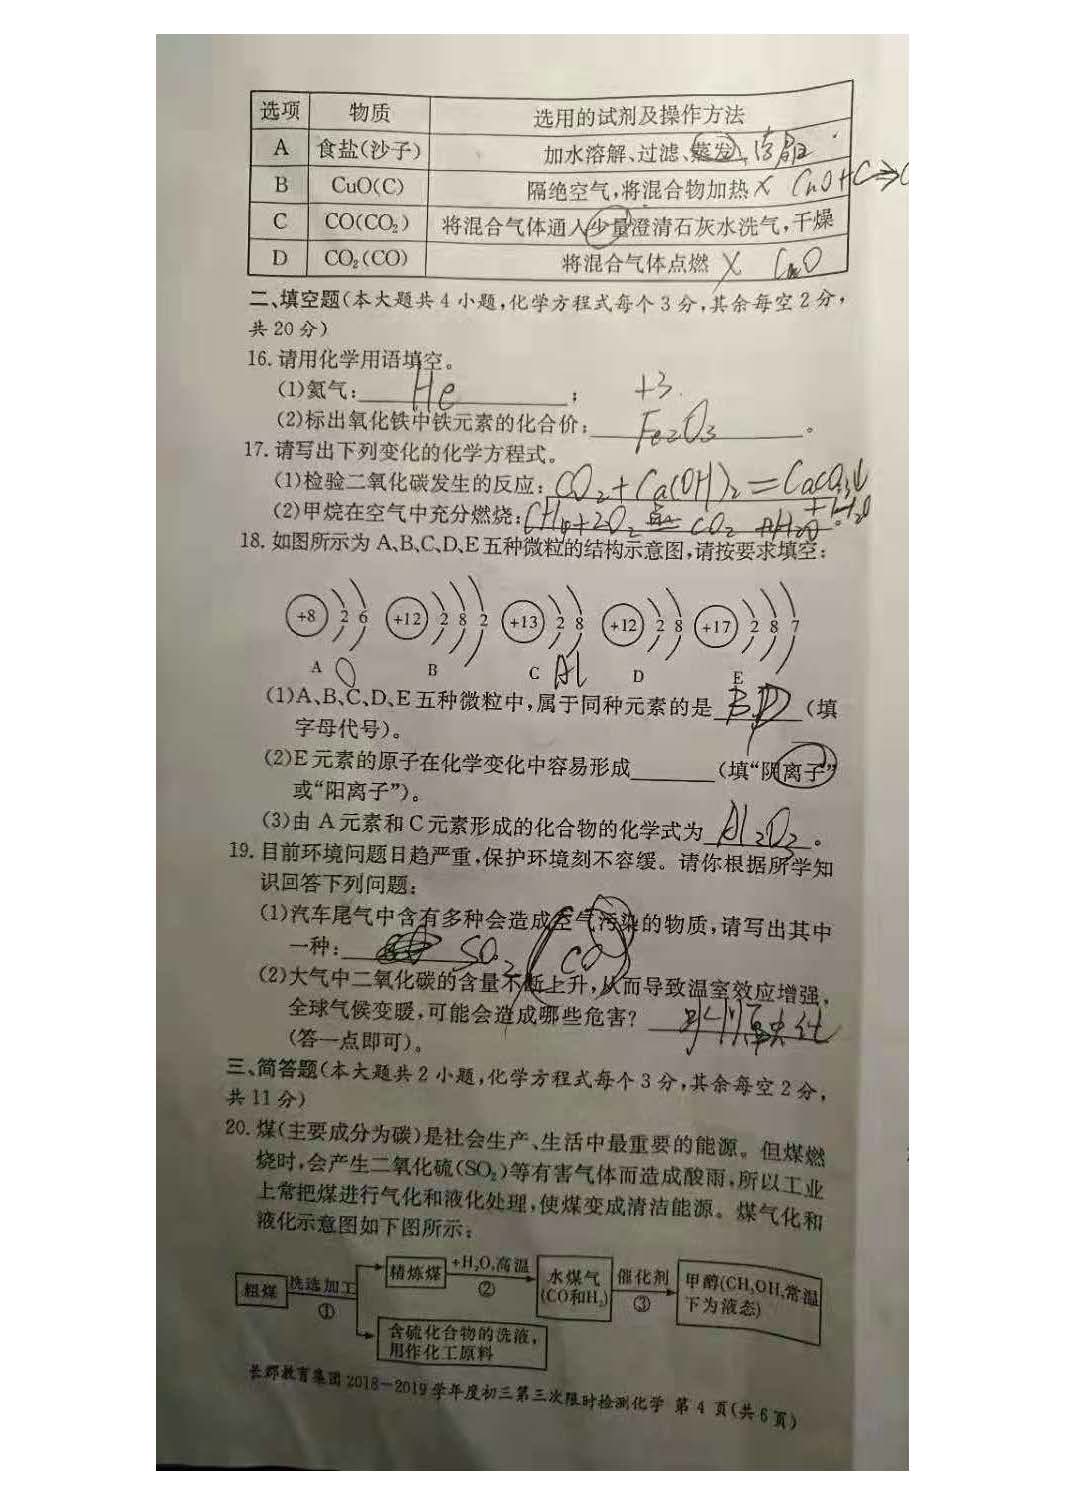 选项 物质 选用的试剂及操作方法
A 食盐(沙子) 加水溶解、过滤、蒸发、结晶
B CuO(C) 隔绝空气,将混合物加热 X CuO+C⇒C
C CO(CO₂) 将混合气体通入少量澄清石灰水洗气,干燥
D CO₂(CO) 将混合气体点燃 X CuO
二、填空题(本大题共4小题,化学方程式每个3分,其余每空2分,
共20分)
16. 请用化学用语填空。
(1)氦气: He ; +3
(2)标出氧化铁中铁元素的化合价: Fe₂O₃ 。
17. 请写出下列变化的化学方程式。
(1)检验二氧化碳发生的反应: CO₂+Ca(OH)₂=CaCO₃↓
+H₂O
(2)甲烷在空气中充分燃烧: CH₄+2O₂ 点 CO₂ +H₂O 。
18. 如图所示为A、B、C、D、E五种微粒的结构示意图,请按要求填空:
+8 2 6 +12 2 8 2 +13 2 8 +12 2 8 +17 2 8 7
A O B C Al D E
(1)A、B、C、D、E五种微粒中,属于同种元素的是 B,D (填
字母代号)。
(2)E元素的原子在化学变化中容易形成 (填“阴离子”
或“阳离子”)。
(3)由A元素和C元素形成的化合物的化学式为 Al₂O₃ 。
19. 目前环境问题日趋严重,保护环境刻不容缓。请你根据所学知
识回答下列问题:
(1)汽车尾气中含有多种会造成空气污染的物质,请写出其中
一种: SO₂ (CO)
(2)大气中二氧化碳的含量不断上升,从而导致温室效应增强,
全球气候变暖,可能会造成哪些危害? 冰川融化
(答一点即可)。
三、简答题(本大题共2小题,化学方程式每个3分,其余每空2分,
共11分)
20. 煤(主要成分为碳)是社会生产、生活中最重要的能源。但煤燃
烧时,会产生二氧化硫(SO₂)等有害气体而造成酸雨,所以工业
上常把煤进行气化和液化处理,使煤变成清洁能源。煤气化和
液化示意图如下图所示:
粗煤 洗选加工 ① 精炼煤 +H₂O,高温 ② 水煤气
(CO和H₂) 催化剂 ③ 甲醇(CH₃OH,常温
下为液态)
含硫化合物的洗液,
用作化工原料
长郡教育集团2018-2019学年度初三第三次限时检测化学 第4页(共6页)